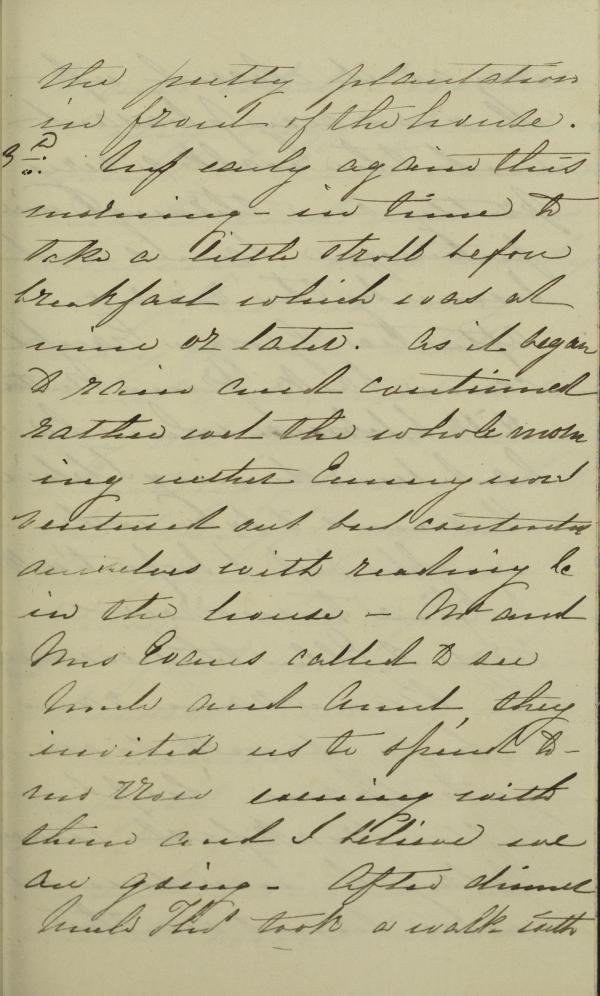 the pretty plantation
in front of the house.
3D. Up early again this
morning - in time to
take a little stroll before
breakfast which was at
nine or later. As it began
to rain and continued
rather wet the whole morn
ing neither Emmy nor I
ventured out but contented
ourselves with reading &c
in the house - Mr and
Mrs Evans called to see
Uncle and Aunt, they
invited us to spend to-
morrow evening with
them and I believe we
are going - After dinner
Uncle took a walk with